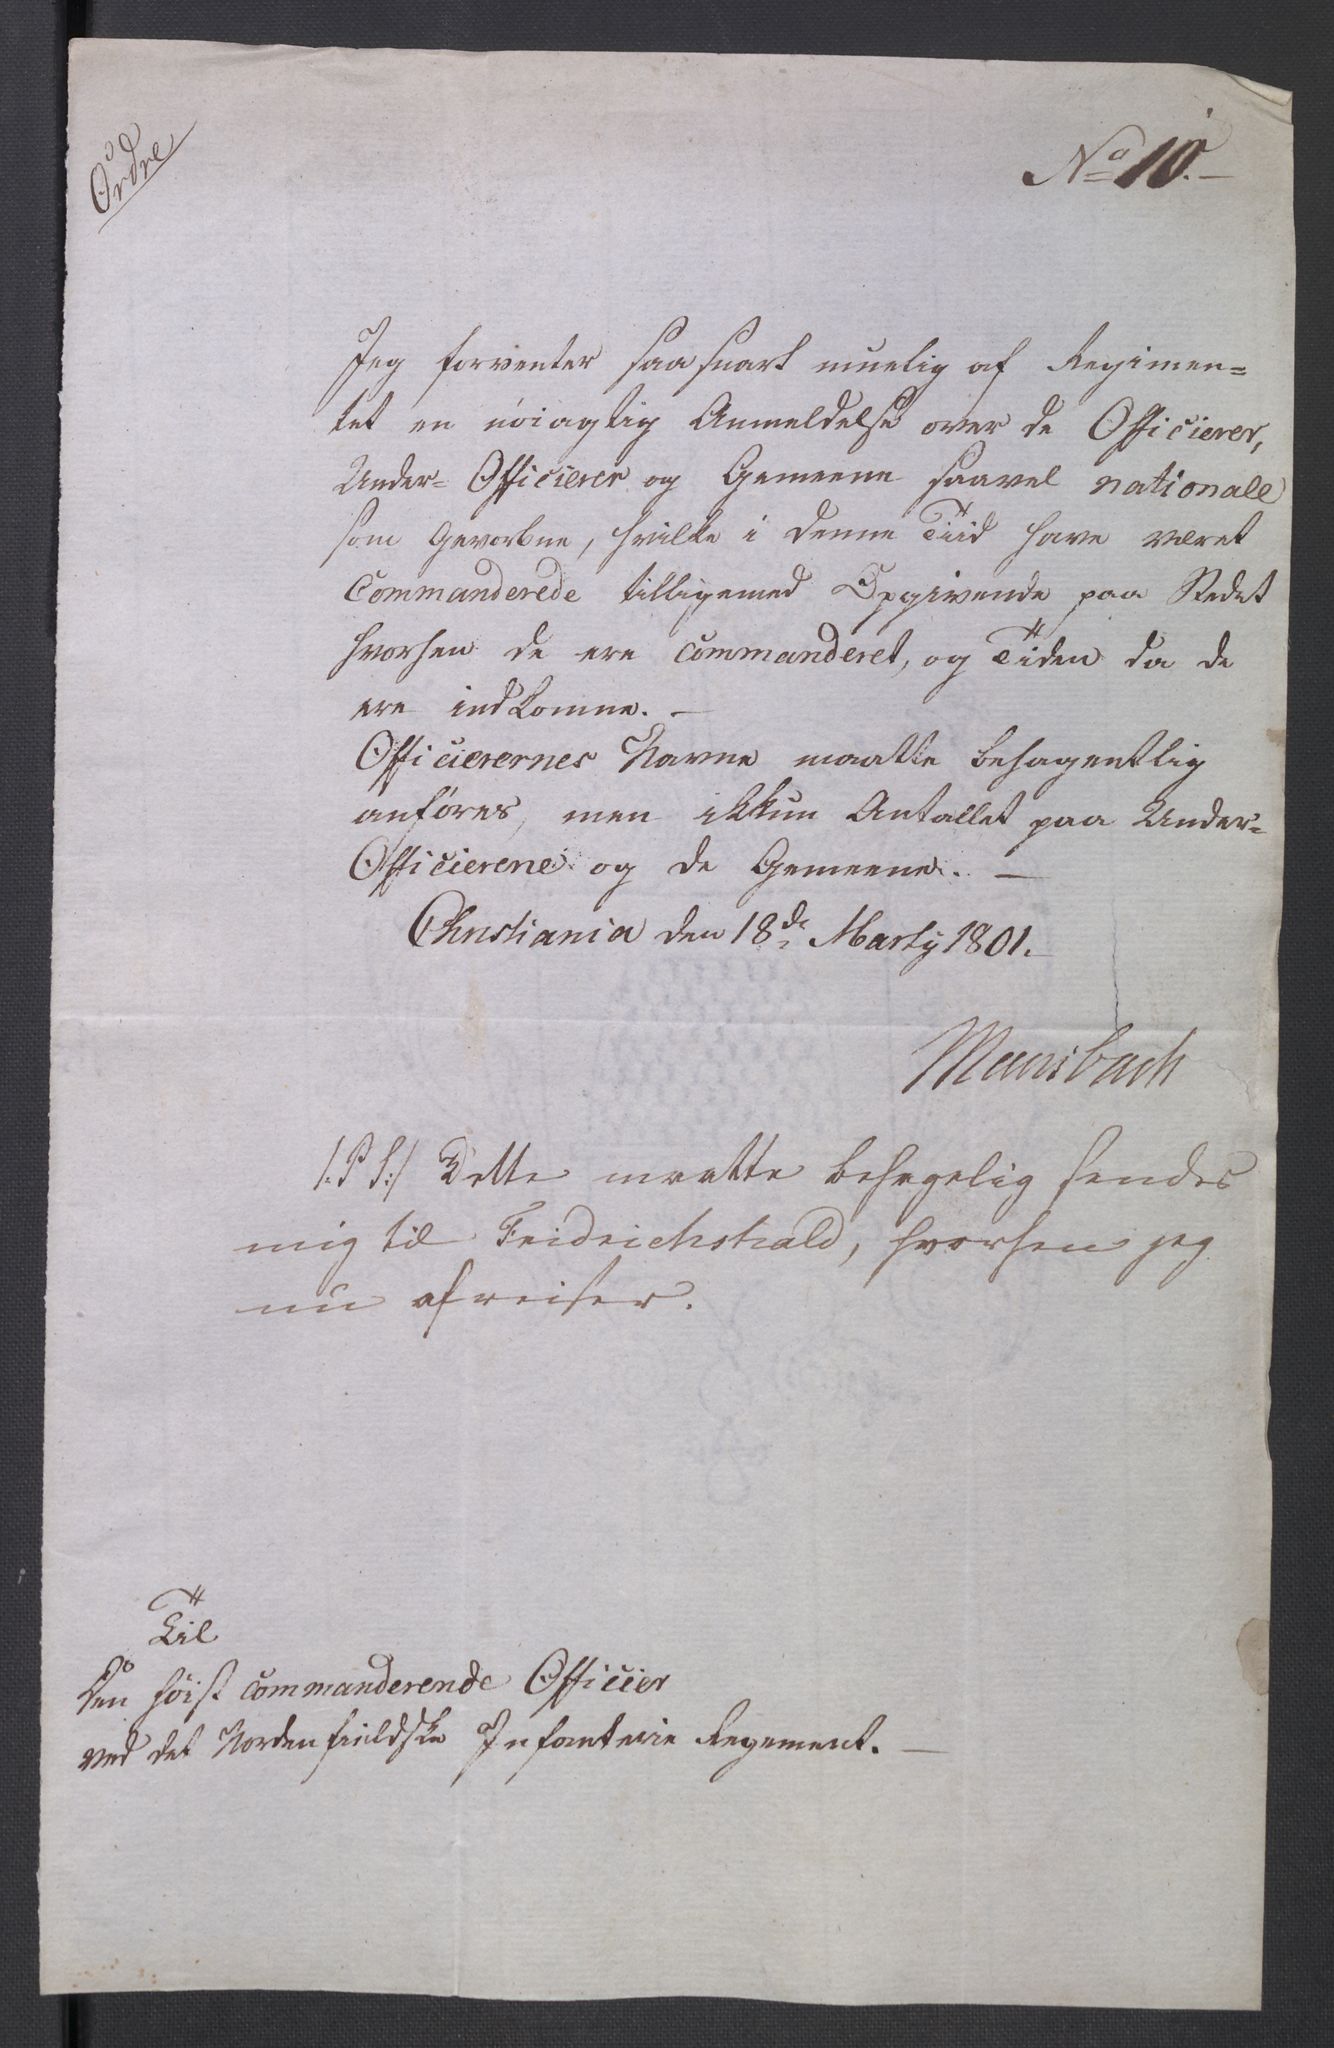 Ordre
No 10.
Jeg forventer saasnart muelig af Regimen=
tet en nöiagtig Anmeldelse over de Officierer,
Under= Officierer og Gemeene saavel nationale
som Gevorbne, hvilke i denne Tiid have været
Commanderede tilligemed Opgivende paa Stedet
hvorhen de ere commanderet, og Tiden da de
ere indkomne. —
Officierernes Navne maatte behagentlig
anföres, men ikkun Antallet paa Under=
Officierene og de Gemeene. —
Christiania den 18de Martij 1801.
Mansbach
/: P S :/ Dette maatte behagelig sendes
mig til Fridrichshald, hvorhen jeg
nu afreiser.
Til
Den höist commanderende Officier
ved det Nordenfieldske Infanterie Regement. —